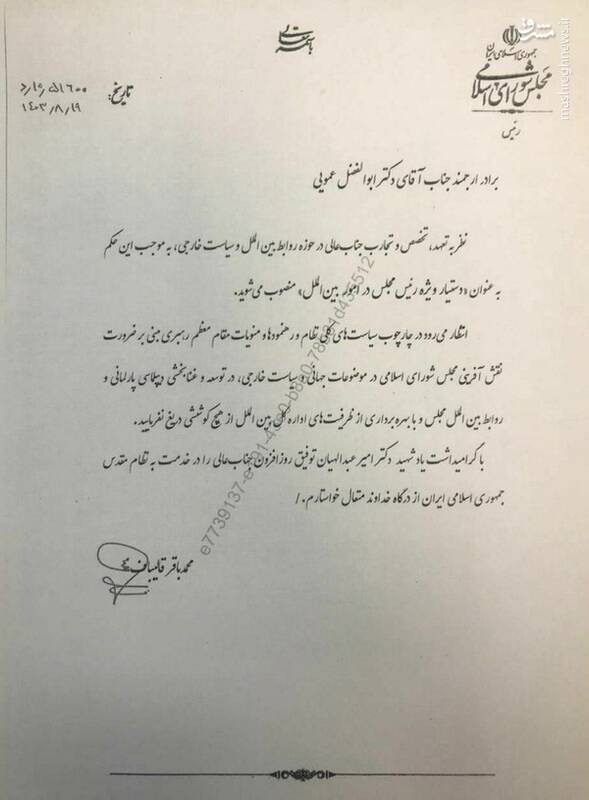 باسمه تعالی
جمهوری اسلامی ایران
مجلس شورای اسلامی
رئیس
تاریخ:
۱۴۰۳/۸/۱۹
برادر ارجمند جناب آقای دکتر ابوالفضل عمویی
نظر به تعهد، تخصص و تجارب جناب‌عالی در حوزه روابط بین الملل و سیاست خارجی، به موجب این حکم
به عنوان «دستیار ویژه رئیس مجلس در امور بین‌الملل» منصوب می‌شوید.
انتظار می‌رود در چارچوب سیاست‌های کلی نظام و رهنمودها و منویات مقام معظم رهبری مبنی بر ضرورت
نقش آفرینی مجلس شورای اسلامی در موضوعات جهانی و سیاست خارجی، در توسعه و غنابخشی دیپلماسی پارلمانی و
روابط بین الملل مجلس و با بهره برداری از ظرفیت‌های اداره کل بین الملل از هیچ کوششی دریغ نفرمایید.
با گرامیداشت یاد شهید دکتر امیرعبدالهیان توفیق روزافزون جناب‌عالی را در خدمت به نظام مقدس
جمهوری اسلامی ایران از درگاه خداوند متعال خواستارم./
محمدباقر قالیباف
مشرق
mashreghnews.ir